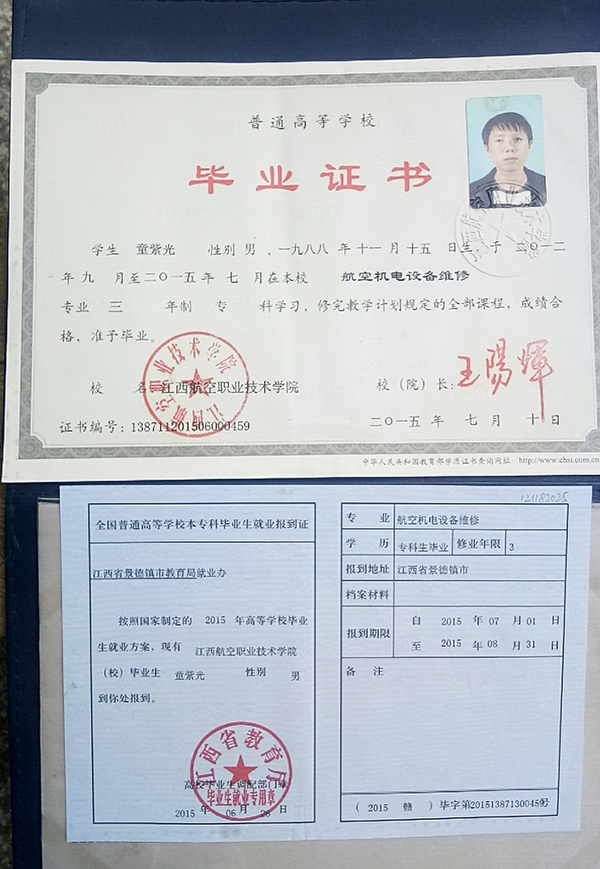 普通高等学校
毕业证书
学生 童紫光 性别 男，一九八八 年 十一 月 十五 日生，于 二〇一二
年 九 月至二〇一五年 七 月在本校 航空机电设备维修
专业 三 年制 专 科学习，修完教学计划规定的全部课程，成绩合
格，准予毕业。
江西航空职业技术学院
校 名：江西航空职业技术学院 校（院）长：王陽輝
证书编号：138711201506000459 二〇一五年 七 月 十 日
中华人民共和国教育部学历证书查询网址：http://www.chsi.com.cn
121182035
全国普通高等学校本专科毕业生就业报到证
江西省景德镇市教育局就业办
按照国家制定的 2015 年高等学校毕业
生就业方案，现有 江西航空职业技术学院
（校）毕业生 童紫光 性别 男
到你处报到。
江西省教育厅
高校毕业生调配部门章
毕业生就业专用章
2015 年 06 月 26 日
专 业 航空机电设备维修
学 历 专科生毕业 修业年限 3
报到地址 江西省景德镇市
档案材料
报到期限 自 2015 年 07 月 01 日
至 2015 年 08 月 31 日
备 注
（ 2015 赣 ）毕字第201513871300459号